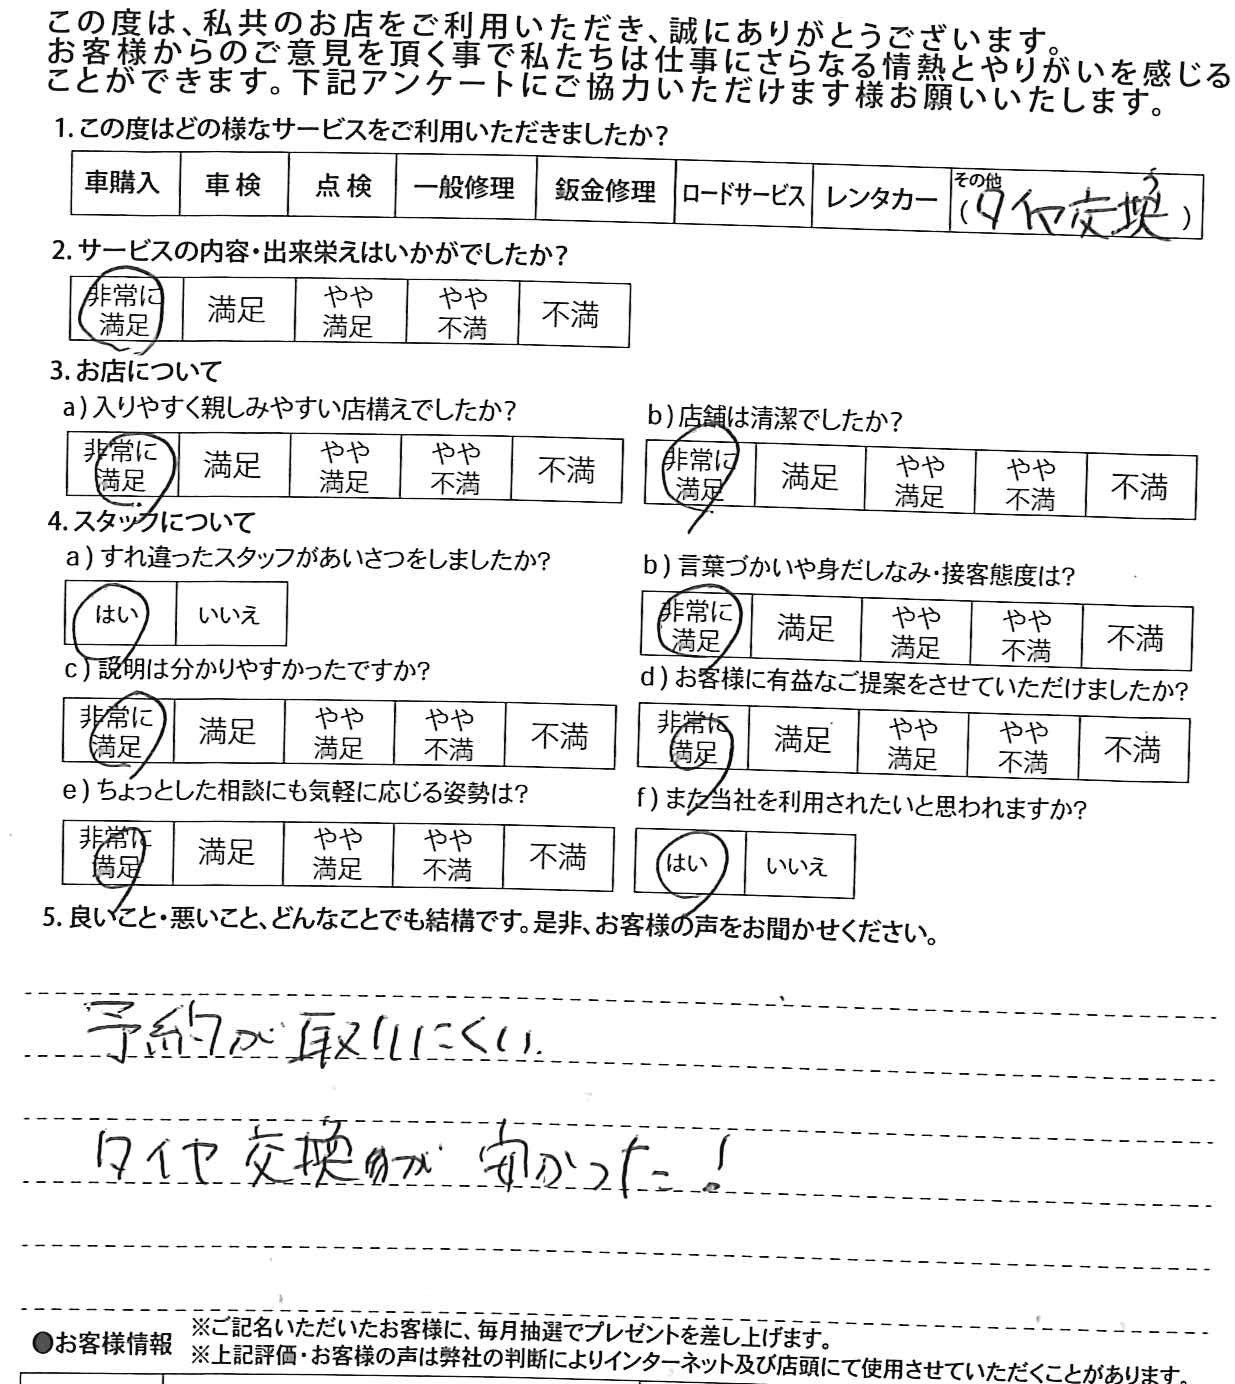 この度は、私共のお店をご利用いただき、誠にありがとうございます。
お客様からのご意見を頂く事で私たちは仕事にさらなる情熱とやりがいを感じる
ことができます。下記アンケートにご協力いただけます様お願いいたします。
1. この度はどの様なサービスをご利用いただきましたか?
車購入 車検 点検 一般修理 鈑金修理 ロードサービス レンタカー その他
(タイヤ交換)
2. サービスの内容・出来栄えはいかがでしたか?
非常に満足 満足 やや満足 やや不満 不満
3. お店について
a) 入りやすく親しみやすい店構えでしたか?
非常に満足 満足 やや満足 やや不満 不満
b) 店舗は清潔でしたか?
非常に満足 満足 やや満足 やや不満 不満
4. スタッフについて
a) すれ違ったスタッフがあいさつをしましたか?
はい いいえ
b) 言葉づかいや身だしなみ・接客態度は?
非常に満足 満足 やや満足 やや不満 不満
c) 説明は分かりやすかったですか?
非常に満足 満足 やや満足 やや不満 不満
d) お客様に有益なご提案をさせていただけましたか?
非常に満足 満足 やや満足 やや不満 不満
e) ちょっとした相談にも気軽に応じる姿勢は?
非常に満足 満足 やや満足 やや不満 不満
f) また当社を利用されたいと思われますか?
はい いいえ
5. 良いこと・悪いこと、どんなことでも結構です。是非、お客様の声をお聞かせください。
予約が取りにくい.
タイヤ交換が安かった!
●お客様情報
※ご記名いただいたお客様に、毎月抽選でプレゼントを差し上げます。
※上記評価・お客様の声は弊社の判断によりインターネット及び店頭にて使用させていただくことがあります。